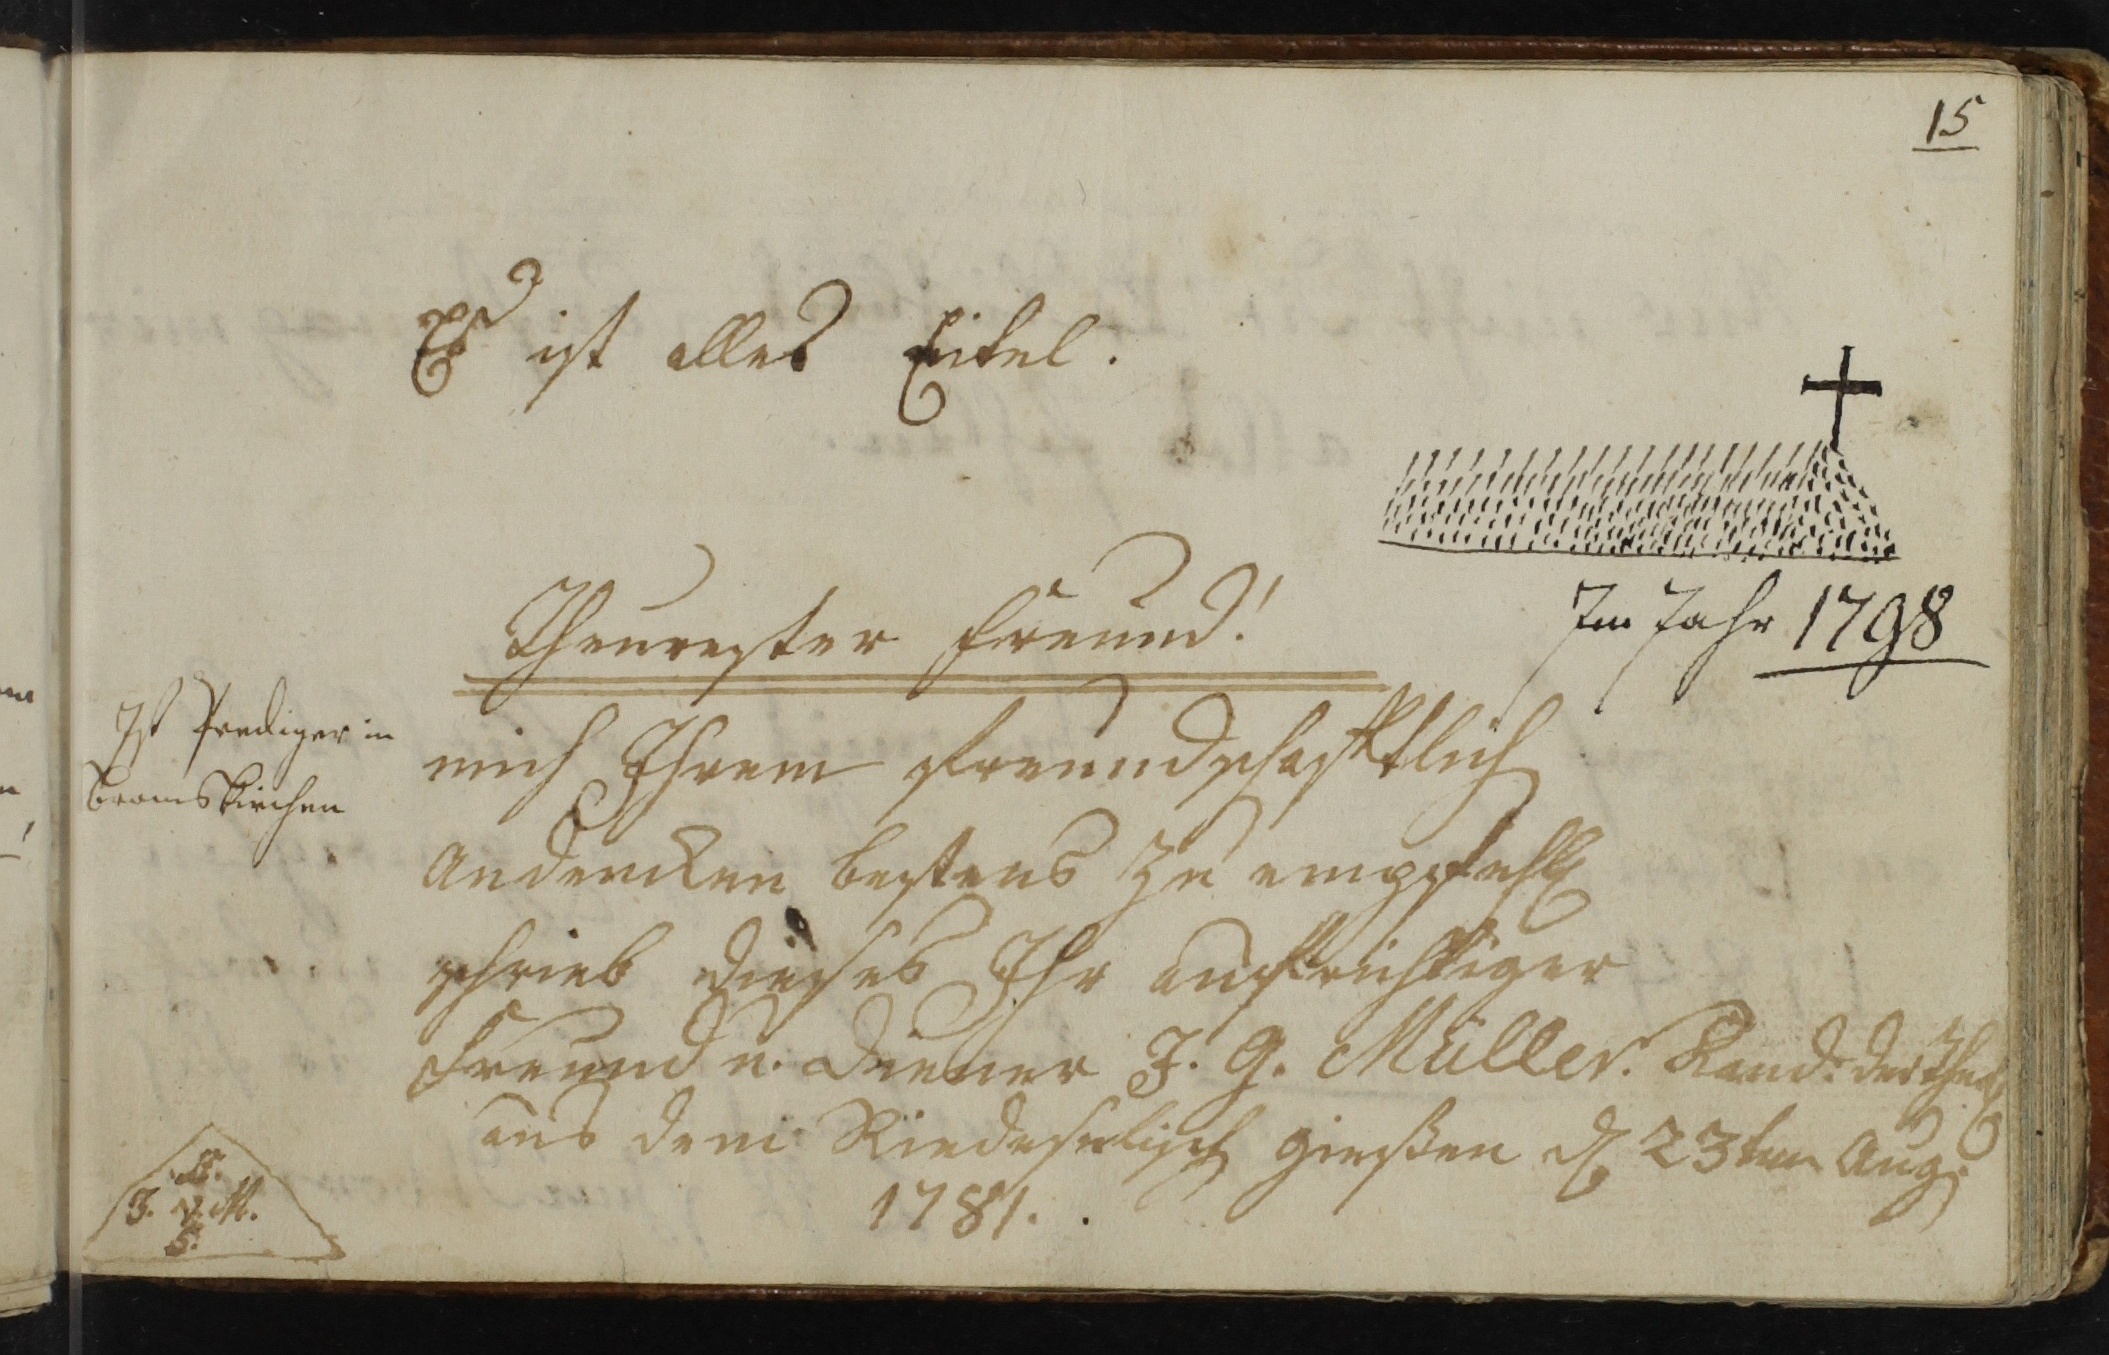 15
Es ist alles Eitel.
Im Jahr 1798
Theurester Freund!
Ist Prediger in
Bromskirchen
mich Ihrem freundschafftlich
Andencken bestens zu empfehl
schrieb dieses Ihr aufrichtiger
Freund u. Diener J. G. Müller. Kand. der Theol
aus dem Riedeselisch Giessen d 23ten Aug.
1781.
J. M.